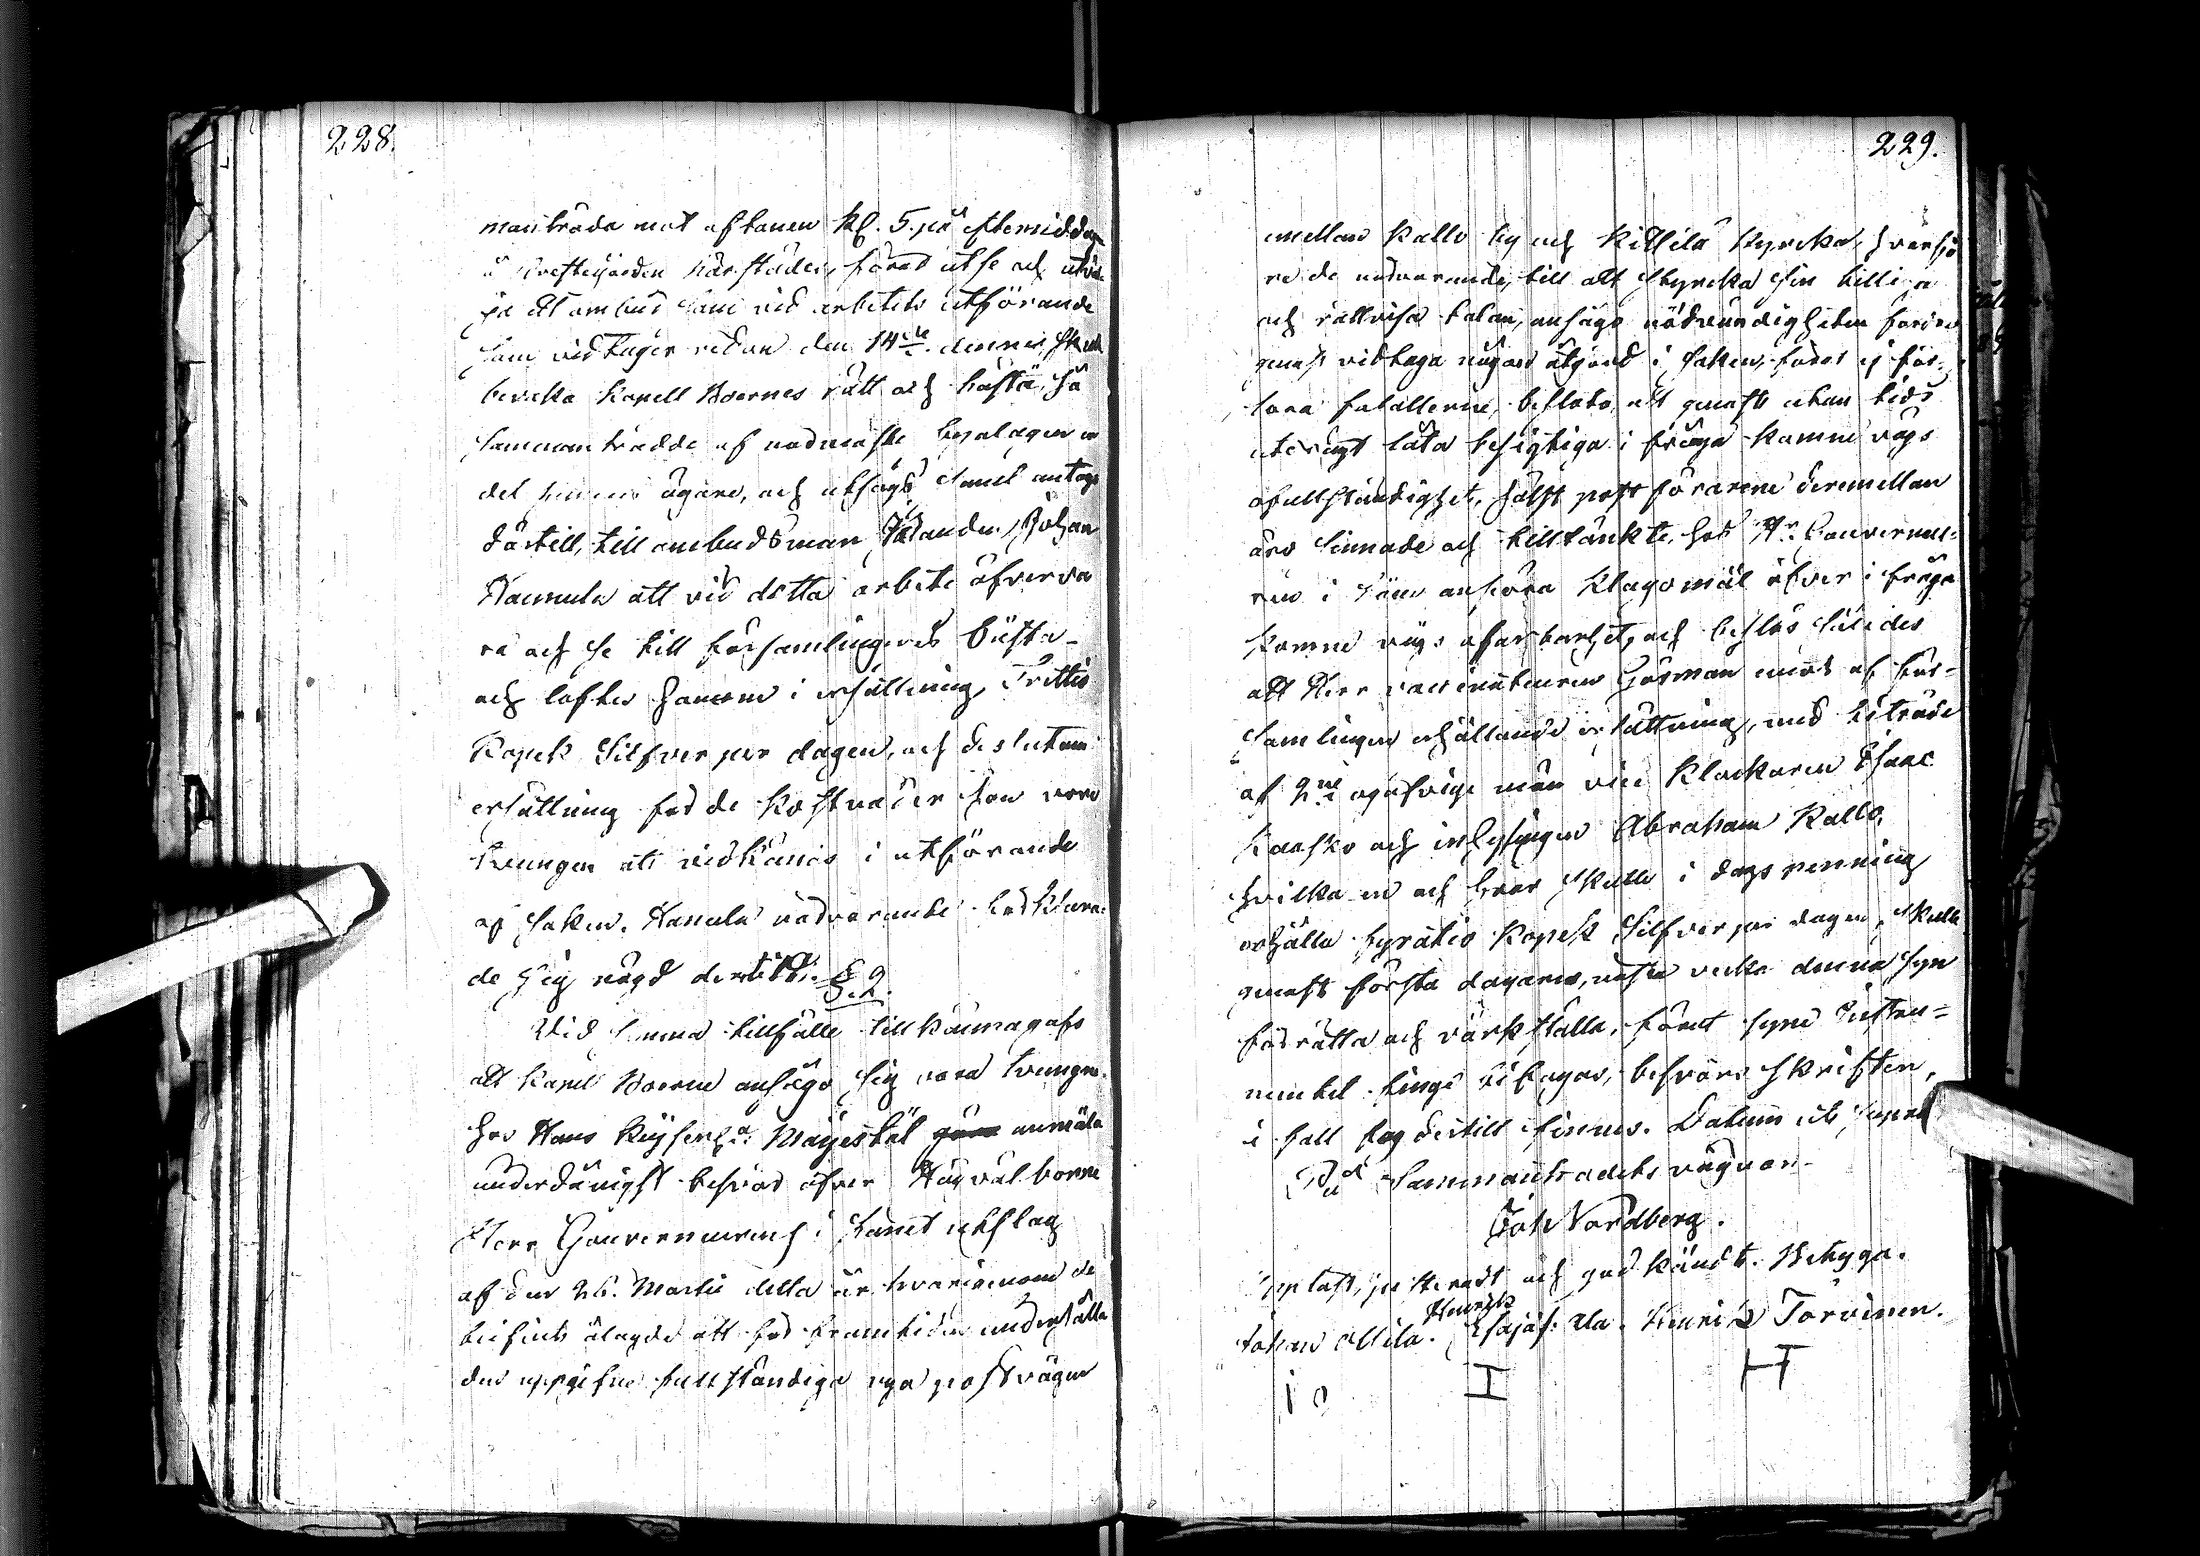 228.
manträda mot aftonen Kl. 5. på eftermiddagen
å Prestegården härstädes, för at utse och utvä-
ja ett ombud som vid arbetets utförande
som vidtager redan den 14de dennes, skulle
bevaka Kapell Boernes rätt och bästa, så
sammanträdde af nödmäste byalagen en
del hemmans ägare, och utsågs samt antogs
därtill, till ombudsman Åbanden Johan
Hannula att vid detta arbete öfverva
ra och se till församlingenes bästa
och löftes honom i ersättning Trettio
Kopek Silfver per dagen, och desslutom
ersättning för de Kostnader han vore
tvungen att vidkännas i utförande
af saken. Hannula närvarande förklara-
de sig nögd dertill. § 2.
Vid samma tillfälle tillkännagafs
att Kapell Boerne ansågo sig vara tvungne
hos Hans Kejserliga Majestät anmäla
underdånigst besvär öfver Högvälborne
Herr Gouverneurens i Länet utslag
af den 26. Martii detta år hvarigenom de
blifvit ålagde att för framtiden underhålla
den uppgifne fullständiga nya postvägen
229.
emellan Kallo by och Kittilä Kyrcka, hvarfö
re de närvarande, till att styrcka sin billiga
och rättvisa talan, ansågo nödvändigheten fordra
genast vidtaga någon åtgärd i saken, för at ej för-
lora fatalierne, beslöto, att genast utan tids
utdrägt låta besigtiga i fråga Komne vägs
ofullständighet, hälst postförarene deremellan
äro sinnade och tilltänkte, hos Hr Gouverneu-
ren i Länet anföra Klagomål öfver i fråga
Komne vägs ofarbarhet, och beslöts således
att Herr vaccinateuren Görman mot af för-
samlingen erhållande ersättning, med biträde
af 2ne ojäfvige män vice Klockaren Isaac
Kaasko och inhysingen Abraham Kallo,
hvilka en och hvar skulle i dagspenning
erhålla fyratio Kopek Silfver per dagen, skulle
genast första dagarne, nästa vecka denna syn
förrätta och värkställa, förat syne Instru-
mentet kunga bifogas, besvärs skriften,
i fall fog dertill finnes. Datum ut supra
På Sammanträdets vägnar
Joh Nordberg.
Uppläst, justeradt och godkändt. Betyga.
Johan Ollila. Henrik Esajas: Ala. Henrik Torvinen.
I O I H